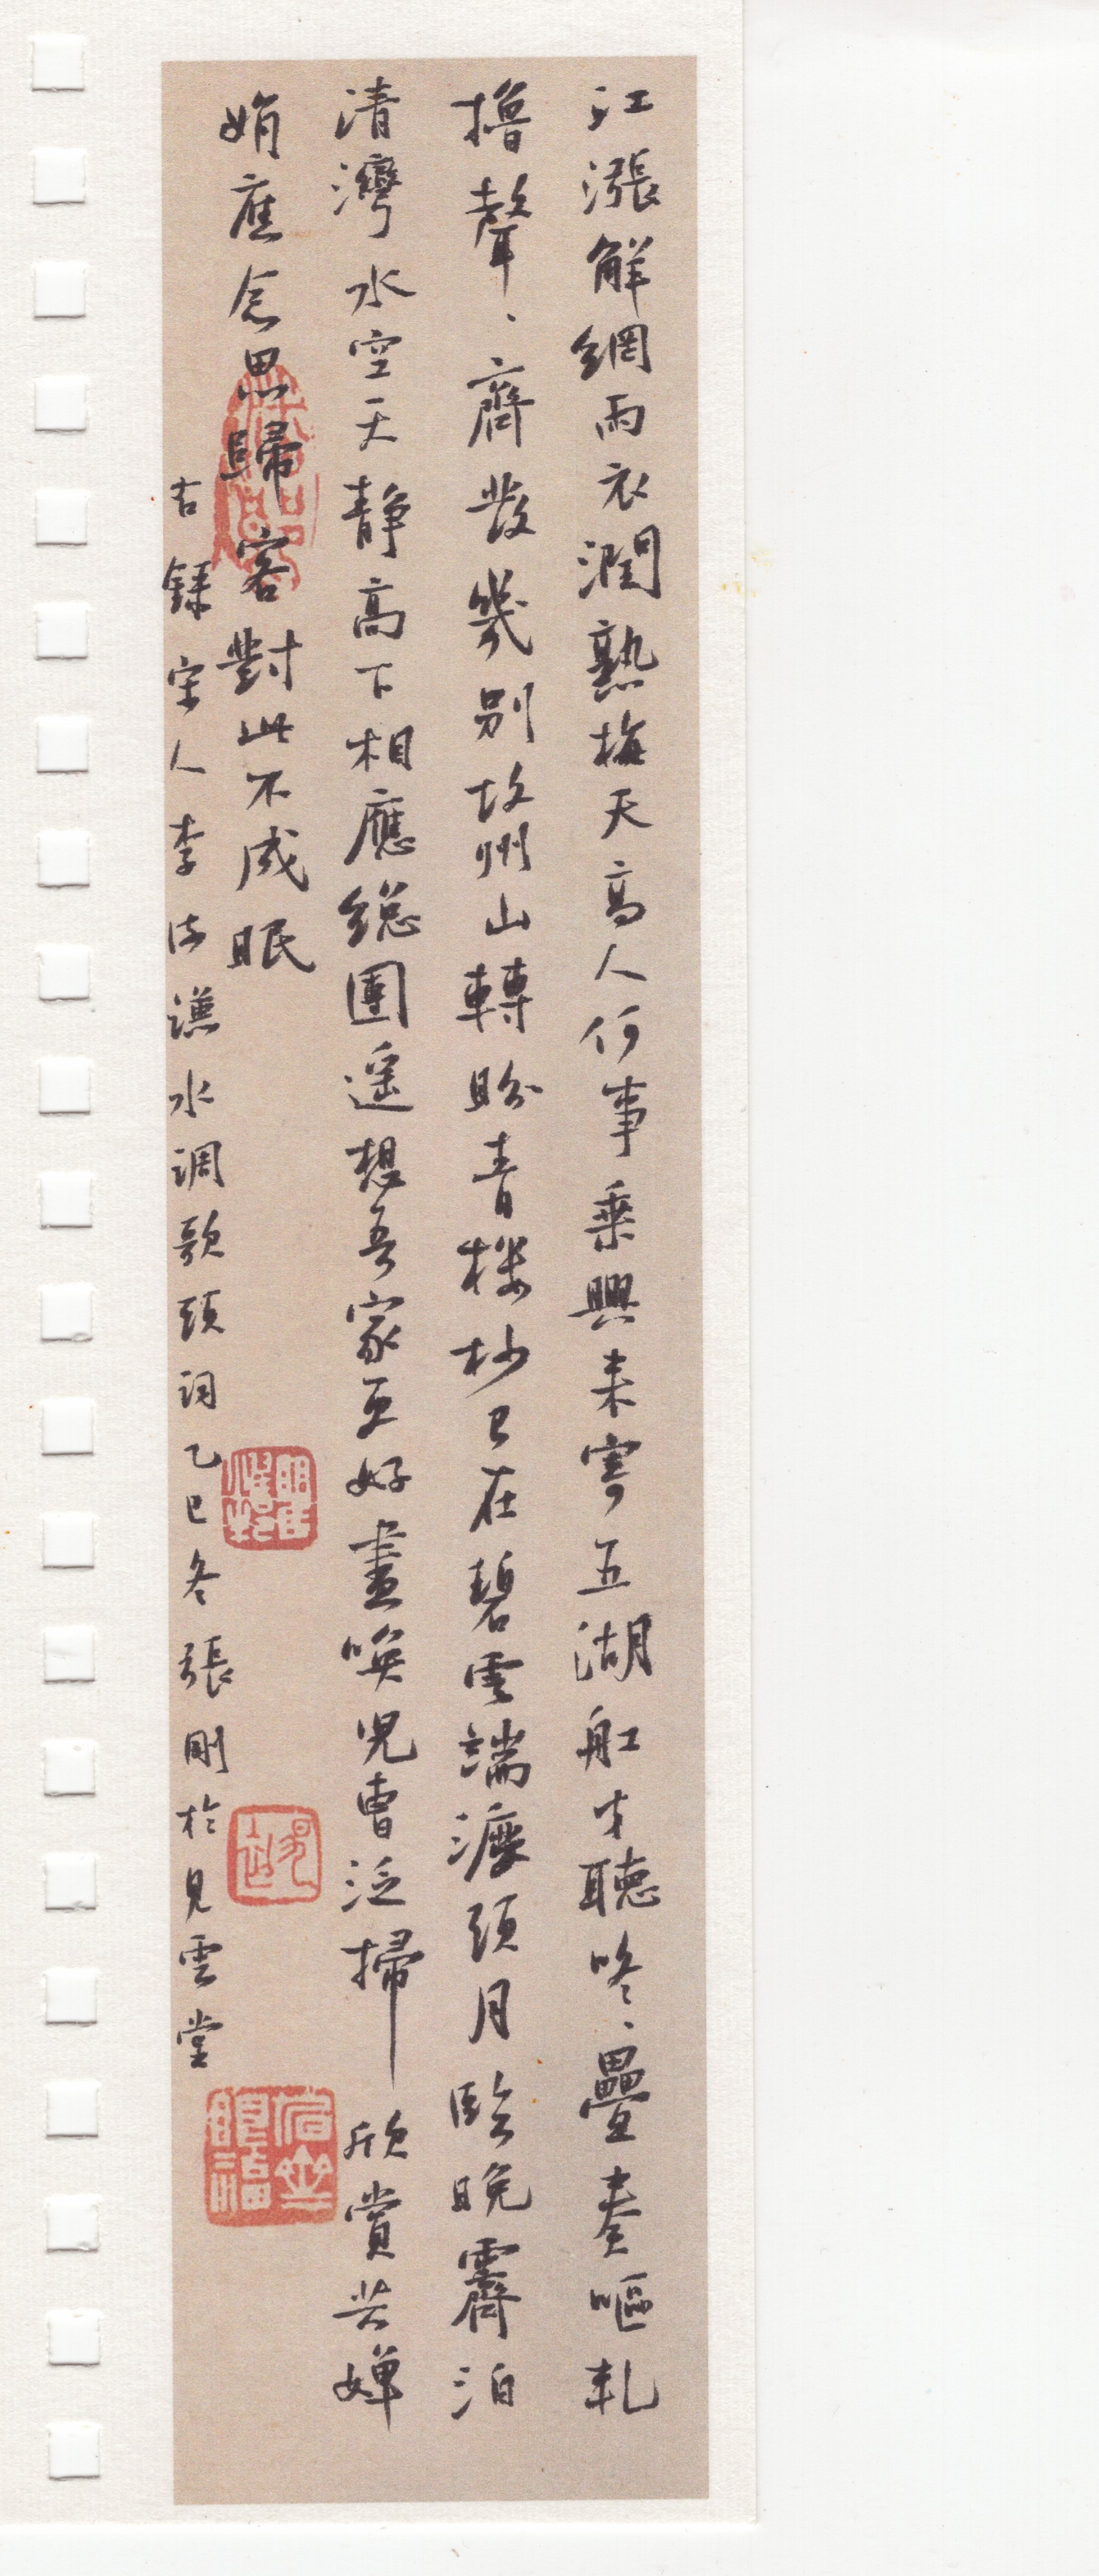 江漲解網雨衣潤熟梅天高人何事乘興来寄五湖舡才聽咚、疊奏嘔軋
擼聲、齊發幾別故州山轉盼青樓杪已在碧雲端瀑頭月臨晚霽泊
清灣水空天静高下相應總團遥想吾家更好盡喚兒曹泛掃欣賞共嬋
娟應念思歸客對此不成眠
古錄宋人李洪谦水調歌頭詞乙巳冬張剛於見雲堂